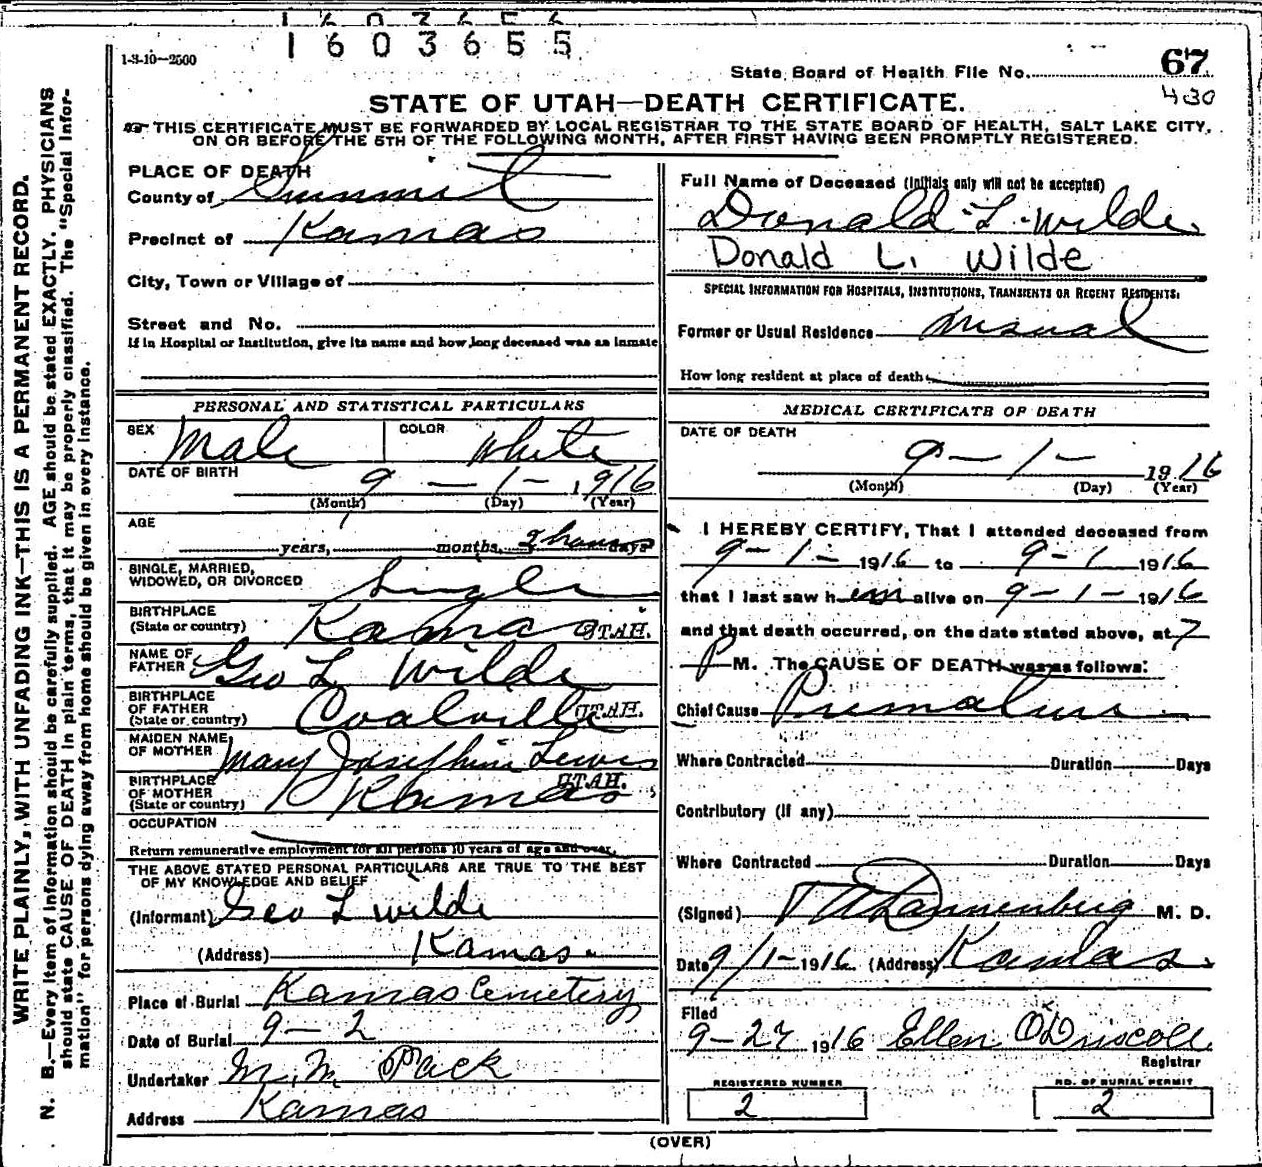 1603655
1-3-10—2500
State Board of Health File No. 67
430
STATE OF UTAH—DEATH CERTIFICATE.
THIS CERTIFICATE MUST BE FORWARDED BY LOCAL REGISTRAR TO THE STATE BOARD OF HEALTH, SALT LAKE CITY,
ON OR BEFORE THE 5TH OF THE FOLLOWING MONTH, AFTER FIRST HAVING BEEN PROMPTLY REGISTERED.
WRITE PLAINLY, WITH UNFADING INK—THIS IS A PERMANENT RECORD.
N. B.—Every item of information should be carefully supplied. AGE should be stated EXACTLY. PHYSICIANS
should state CAUSE OF DEATH in plain terms, that it may be properly classified. The "Special Infor-
mation" for persons dying away from home should be given in every instance.
PLACE OF DEATH
County of Summit
Precinct of Kamas
City, Town or Village of
Street and No.
If in Hospital or Institution, give its name and how long deceased was an inmate
PERSONAL AND STATISTICAL PARTICULARS
SEX Male COLOR White
DATE OF BIRTH
9 — 1 — 1916
(Month) (Day) (Year)
AGE
years, months, 2 hours days
SINGLE, MARRIED,
WIDOWED, OR DIVORCED Single
BIRTHPLACE
(State or country) Kamas UTAH.
NAME OF
FATHER Geo L Wilde
BIRTHPLACE
OF FATHER
(State or country) Coalville UTAH.
MAIDEN NAME
OF MOTHER Mary Josephine Lewis
BIRTHPLACE
OF MOTHER
(State or country) Kamas UTAH.
OCCUPATION
Return remunerative employment for all persons 10 years of age and over.
THE ABOVE STATED PERSONAL PARTICULARS ARE TRUE TO THE BEST
OF MY KNOWLEDGE AND BELIEF
(Informant) Geo L Wilde
(Address) Kamas.
Place of Burial Kamas Cemetery
Date of Burial 9 — 2
Undertaker M. M. Pack
Address Kamas
Full Name of Deceased (Initials only will not be accepted)
Donald L. Wilde.
Donald L. Wilde
SPECIAL INFORMATION FOR HOSPITALS, INSTITUTIONS, TRANSIENTS OR RECENT RESIDENTS.
Former or Usual Residence usual
How long resident at place of death
MEDICAL CERTIFICATE OF DEATH
DATE OF DEATH
9 — 1 — 1916
(Month) (Day) (Year)
I HEREBY CERTIFY, That I attended deceased from
9 — 1 — 1916 to 9 — 1 1916
that I last saw him alive on 9 — 1 — 1916
and that death occurred, on the date stated above, at 7
P M. The CAUSE OF DEATH was as follows:
Chief Cause Premature
Where Contracted Duration Days
Contributory (if any)
Where Contracted Duration Days
(Signed) Dannenberg M. D.
Date 9/1—1916 (Address) Kamas.
Filed
9—27 1916 Ellen O'Driscoll
Registrar
REGISTERED NUMBER
2
NO. OF BURIAL PERMIT
2
(OVER)